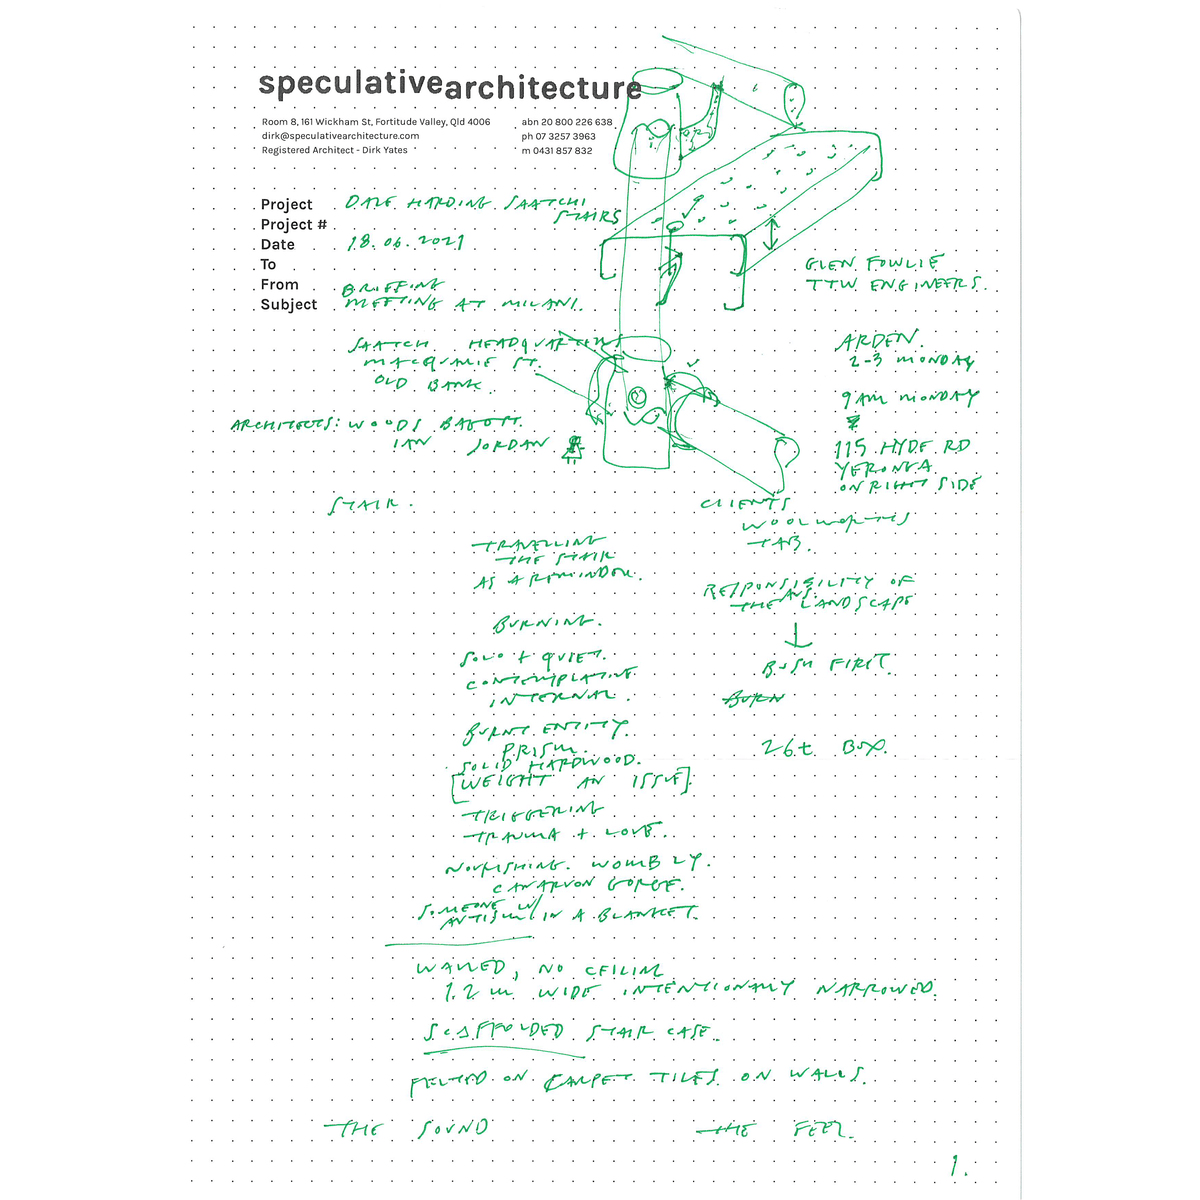 speculativearchitecture
Room 8, 161 Wickham St, Fortitude Valley, Qld 4006
dirk@speculativearchitecture.com
Registered Architect - Dirk Yates
abn 20 800 226 638
ph 07 3257 3963
m 0431 857 832
Project DALE HARDING SAATCHI
STAIRS
Project #
Date 18.06.2021
To
From BRIEFING
Subject MEETING AT MILANI.
GLEN FOWLIE
TTW ENGINEERS.
SAATCH HEADQUARTERS
MACQUARIE ST.
OLD BANK.
ARCHITECTS: WOODS BAGOTT.
IAN JORDAN
ARDEN.
2-3 MONDAY
9AM MONDAY
115 HYDE RD
YERONGA
ON RIGHT SIDE
STAIR.
CLIENTS
WOOLWORTHS
TAB.
TRAVELLING
THE STAIR
AS A REMINDER.
RESPONSIBILITY OF
THE LANDSCAPE
BURNING.
BUSH FIRST
BURN
26t BOX.
SOLO + QUIET.
CONTEMPLATIVE
INTERNAL.
BURNT ENTITY
PRISM.
SOLID HARDWOOD.
[WEIGHT AN ISSUE].
TRIGGERING
TRAUMA + LOVE.
NOURISHING. WOMBLY.
CANARVON GORGE.
SOMEONE W/
AUTISM IN A BLANKET.
WALLED, NO CEILING
1.2m WIDE INTENTIONALLY NARROWED.
SCAFFOLDED STAIR CASE.
FELTED ON CARPET TILES ON WALLS.
THE SOUND THE FEEL.
1.